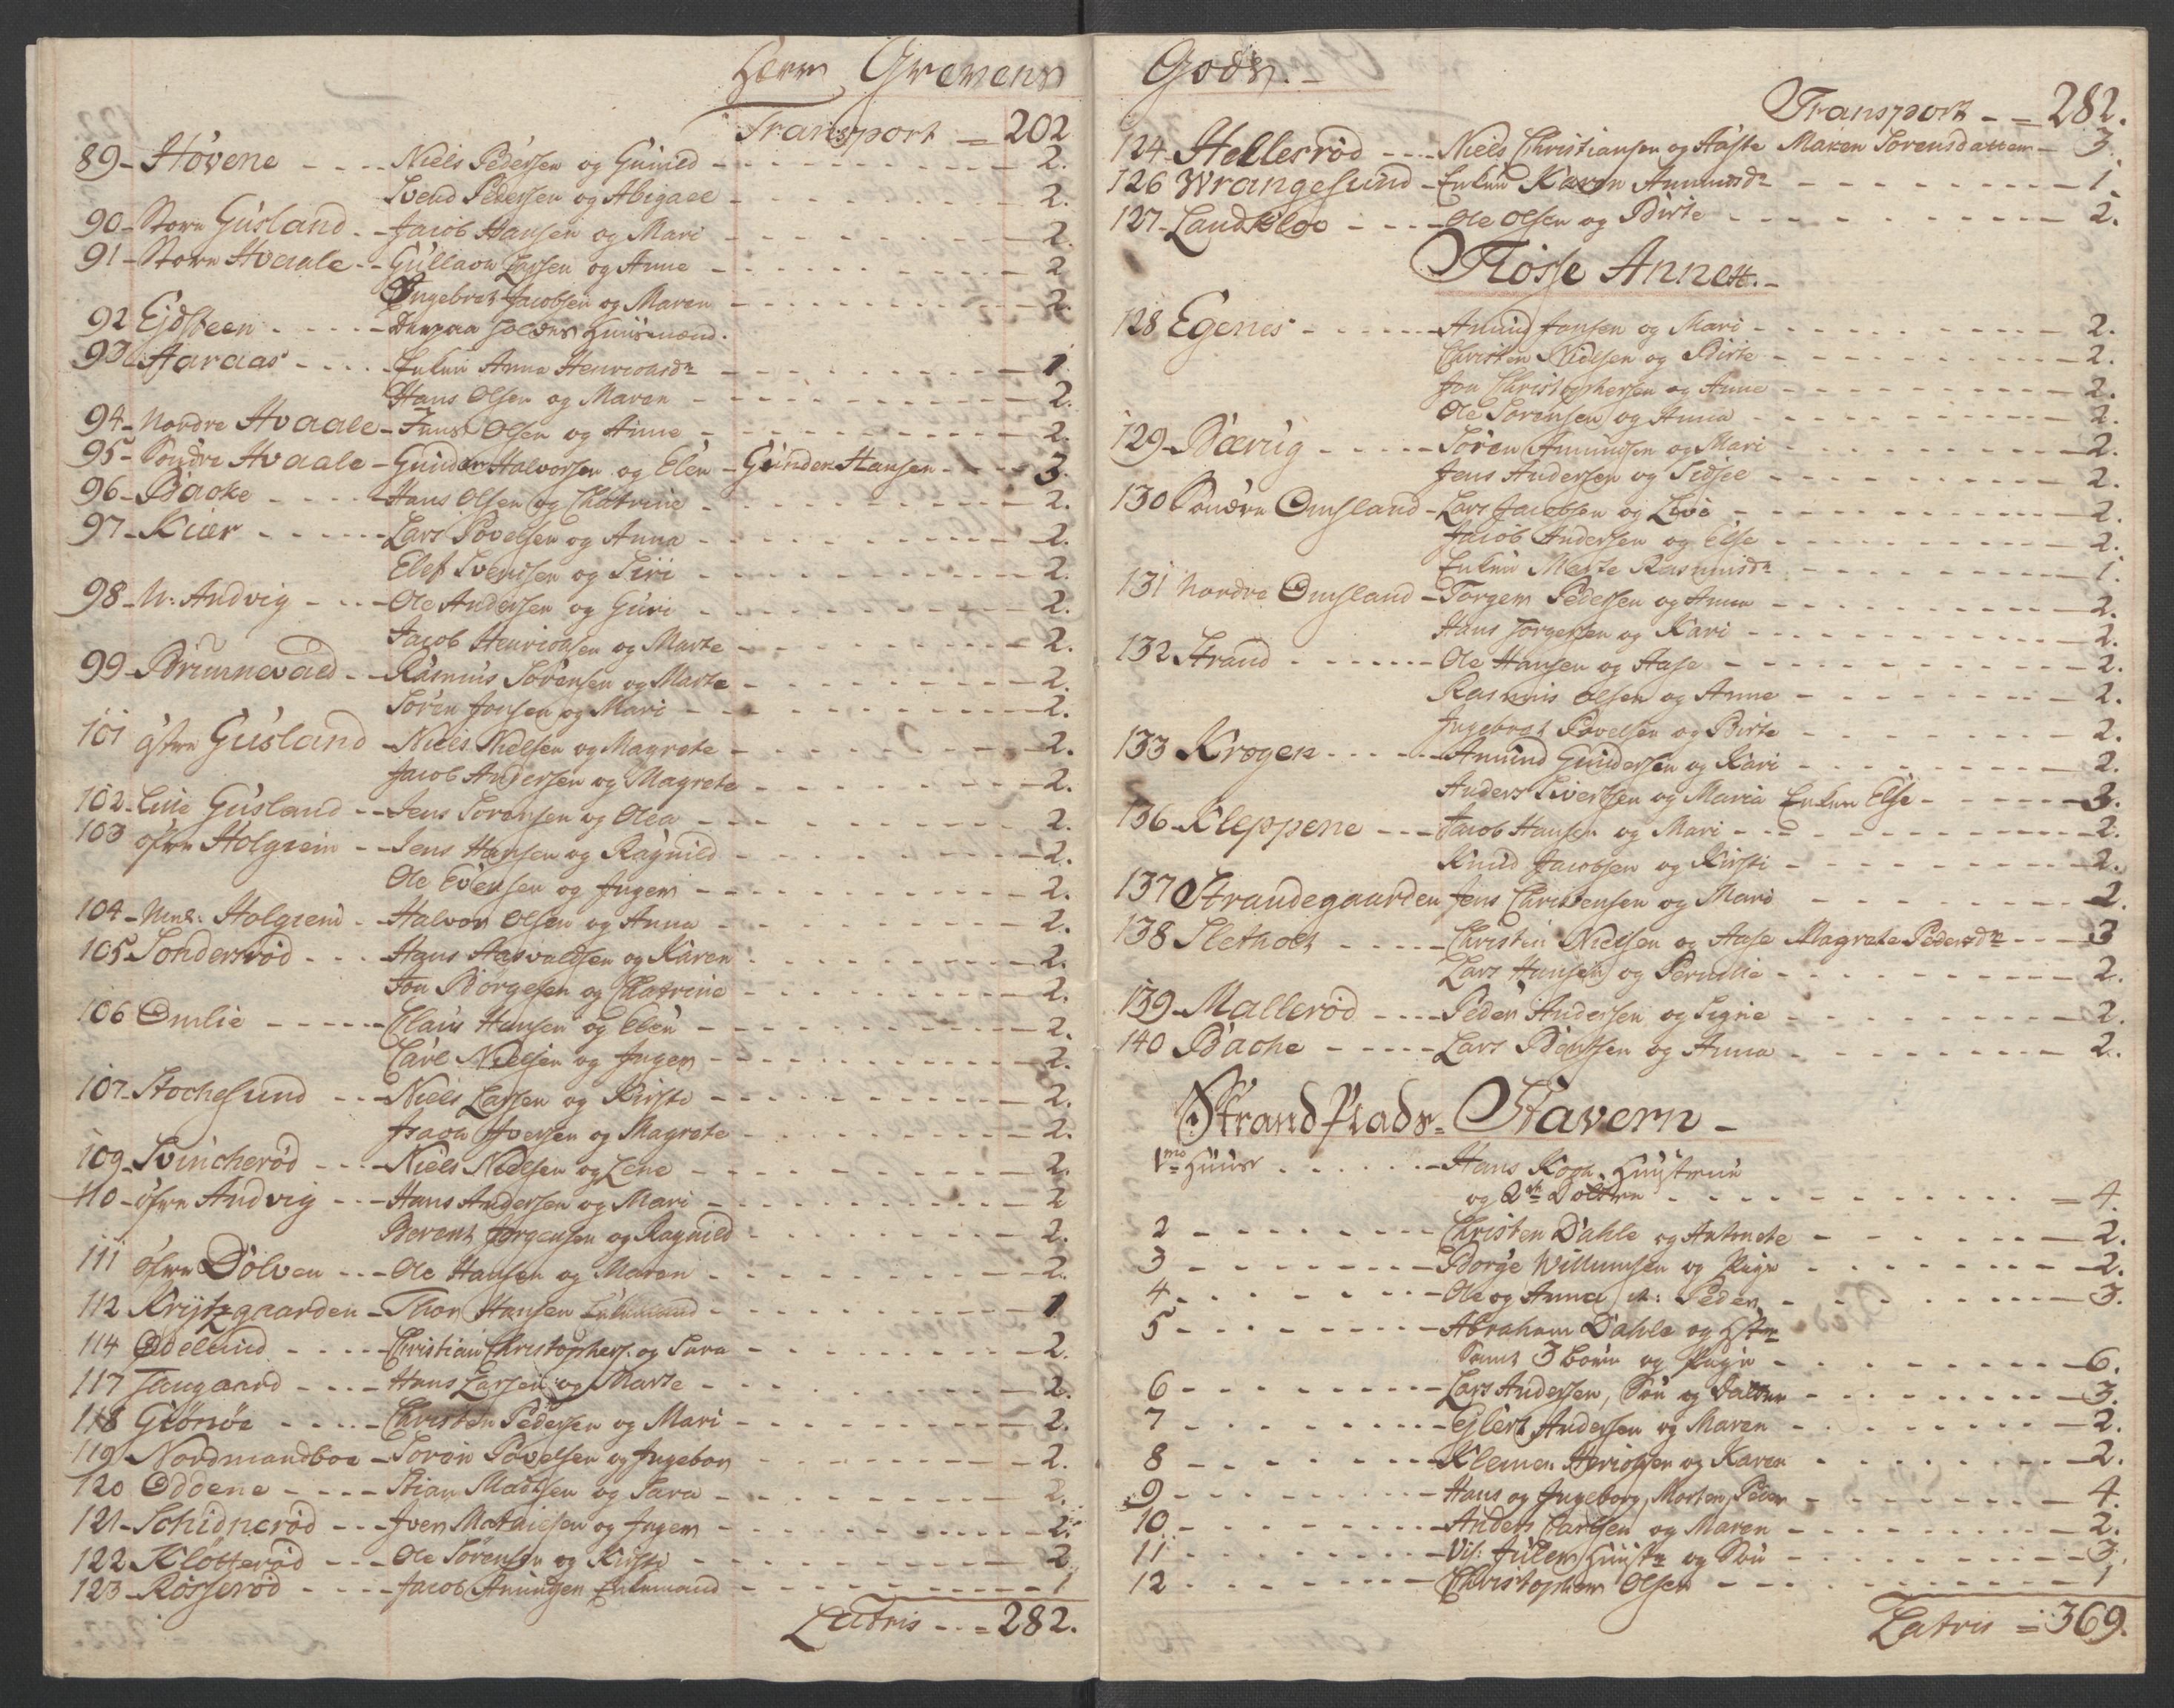 Herr Grevens
Transport = 202
89 - Hövene - - - Niels Pedersen og Gunild - - - 2.
Svend Pedersen og Abigael - - - 2.
90 - Store Gusland - - Jacob Hansen og Mari - - - 2.
91 - Store Hvaale - - Gullach Larsen og Anne - - - 2
Ingebret Jacobsen og Maren - - - 2.
92 Ejdsteen - - - Huusmænd.
93 Haraas - - - Enken Anna Henrichsdr - - - 1
Hans Olsen og Maren - - - 2.
94 - Nordre Hvaale - Olsen og Anne - - - 2.
95 - Söndre Hvaale - Gunder Halvorsen og Elen - Gunder Hansen - - - 3.
96 - Backe - - - Hans Olsen og Chatrine - - - 2.
97 - Kiær - - - Lars Povelsen og Anna - - - 2.
Elef Svendsen og Siri - - - 2.
98 - N: Andvig - - - Ole Andersen og Guri - - - 2.
Jacob Henrichsen og Marte - - - 2.
99 - Brunnevald - - Rasmus Sörensen og Marte - - - 2.
Sören Jonsen og Mari - - - 2.
101 östre Gusland - Niels Nielsen og Magrete - - - 2.
Jacob Andersen og Magrete - - - 2.
102 - Lille Gusland - - Jens Sörensen og Olea - - - 2.
103 öfre Holgiein - - Jens Hansen og Ragnild - - - 2.
Ole Evensen og Inger - - - 2.
104 - Ned: Holgiein - Halvor Olsen og Anna - - - 2.
105 Sondersröd - - - Hans Aasvaldsen og Karen - - - 2.
Jon Börgesen og Chatrine - - - 2.
106 Omlie - - - Claus Hansen og Elen - - - 2.
Carl Nielsen og Inger - - - 2.
107 - Stochesund - - - Niels Larsen og Kirsti - - - 2.
Isach Iversen og Magrete - - - 2.
109 - Svincheröd - - - Niels Nielsen og Lene - - - 2.
110 - öfre Andvig - - - Hans Andersen og Mari - - - 2
Berent Jörgensen og Ragnild - - - 2.
111 öfre Dölven - - - Ole Hansen og Maren - - - 2.
112 Krydzgaarden - Thor Hansen Enkemand - - - 1
114 Ödelund - - - Christian Christophers. og Sara - - - 2.
117 Haugaard - - - Hans Larsen og Marte - - - 2.
118 Glönöe - - - Christen Pedersen og Mari - - - 2.
119 Nordmandboe - Sören Povelsen og Ingebor - - - 2.
120 Oddene - - - Stian Madtsen og Sara - - - 2.
121 - Schidneröd - - - Iver Mathiesen og Inger - - - 2.
122 Klötteröd - - - Ole Sörensen og Kirsti - - - 2
123 - Rösseröd - - - Jacob Amundsen Enkemand - - - 1
Latris - - = 282.
Gods. -
Transport - = 282.
124 - Helleröd - - - Niels Christiansen og Aaste Maren Sörensdatter - 3
126 Wrangesund - Enken Karen Amundsdr - - - 1.
127 - Landkloe - - - Ole Olsen og Birte - - - 2.
Tiösse Annext. -
128 Egenes - - - Amund Jansen og Mari - - - 2.
Christen Nielsen og Birte - - - 2.
Jon Christophersen og Anne - - - 2.
Ole Sörensen og Anna - - - 2.
129 - Bærug - - - Sören Amundsen og Mari - - - 2.
Jens Andersen og Sidsel - - - 2.
130 Söndre Omsland - Lars Jacobsen og Live - - - 2.
Jacob Andersen og Else - - - 2.
Enken Marte Rasmusdr - - - 1.
131 Nordre Omsland - Torger Pedersen og Anna - - - 2.
Hans Torgersen og Kari - - - 2.
132 Strand - - - Ole Hansen og Aase - - - 2.
Rasmus Olsen og Anne - - - 2.
Ingebret Povelsen og Birte - - - 2.
133 Krogen - - - Amund Gundersen og Kari - - - 2.
Anders Sivertsen og Maria Enken Else - - - 3.
136 - Kleppene - - - Jacob Hansen og Mari - - - 2.
Knud Jacobsen og Kirsti - - - 2.
137 Strandegaarden Jens Christensen og Mari - - - 2.
138 Sletholt - - - Christen Nielsen og Aase Magrete Pedersdr - - - 3
Lars Hansen og Pernille - - - 2.
139 - Malleröd - - - Peder Andersen og Signe - - - 2.
140 Bache - - - Lars Bentsen og Anna - - - 2.
Strand Plads - Stavern -
1mo Huus - - - Hans Koch. Huustrue
og 2de Döttre - - - = 4.
2 - - - Christen Dahle og Antonete - - - 2.
3 - - - Börge Willumsen og Pige - - - 2.
4 - - - Ole og Anna it: Peder - - - 3.
5 - - - Abraham Dahle og Hstr
Samt 3 börn og Pige - - - 6.
6 - - - Lars Andersen, Sön og Datter - - - 3.
7 - - - Ejlert Andersen og Maren - - - 2.
8 - - - Klemen Henrichsen og Karen - - - 2.
9 - - - Hans og Ingeborg, Morten, Peder - - - 4.
10 - - - Anders Carlsen og Maren - - - 2.
11 - - - Vil: Julen Huustr og Sön - - - 3.
12 - - - Christopher Olsen - - - 1
Latris = 369.